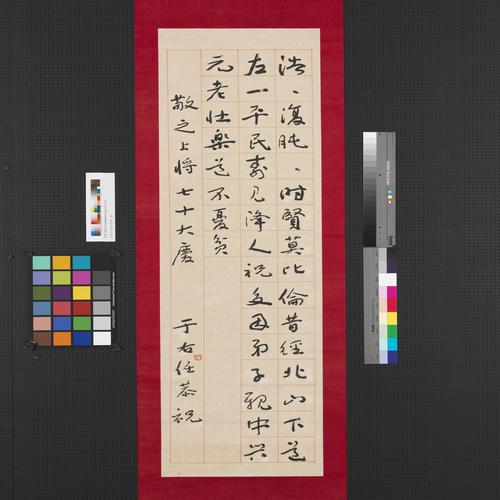 浩、復肫、時賢莫比倫昔經北山下道
左一平民壽見降人祝因弟子親中興
元老壯樂道不憂貧
敬之上將七十大慶 于右任恭祝